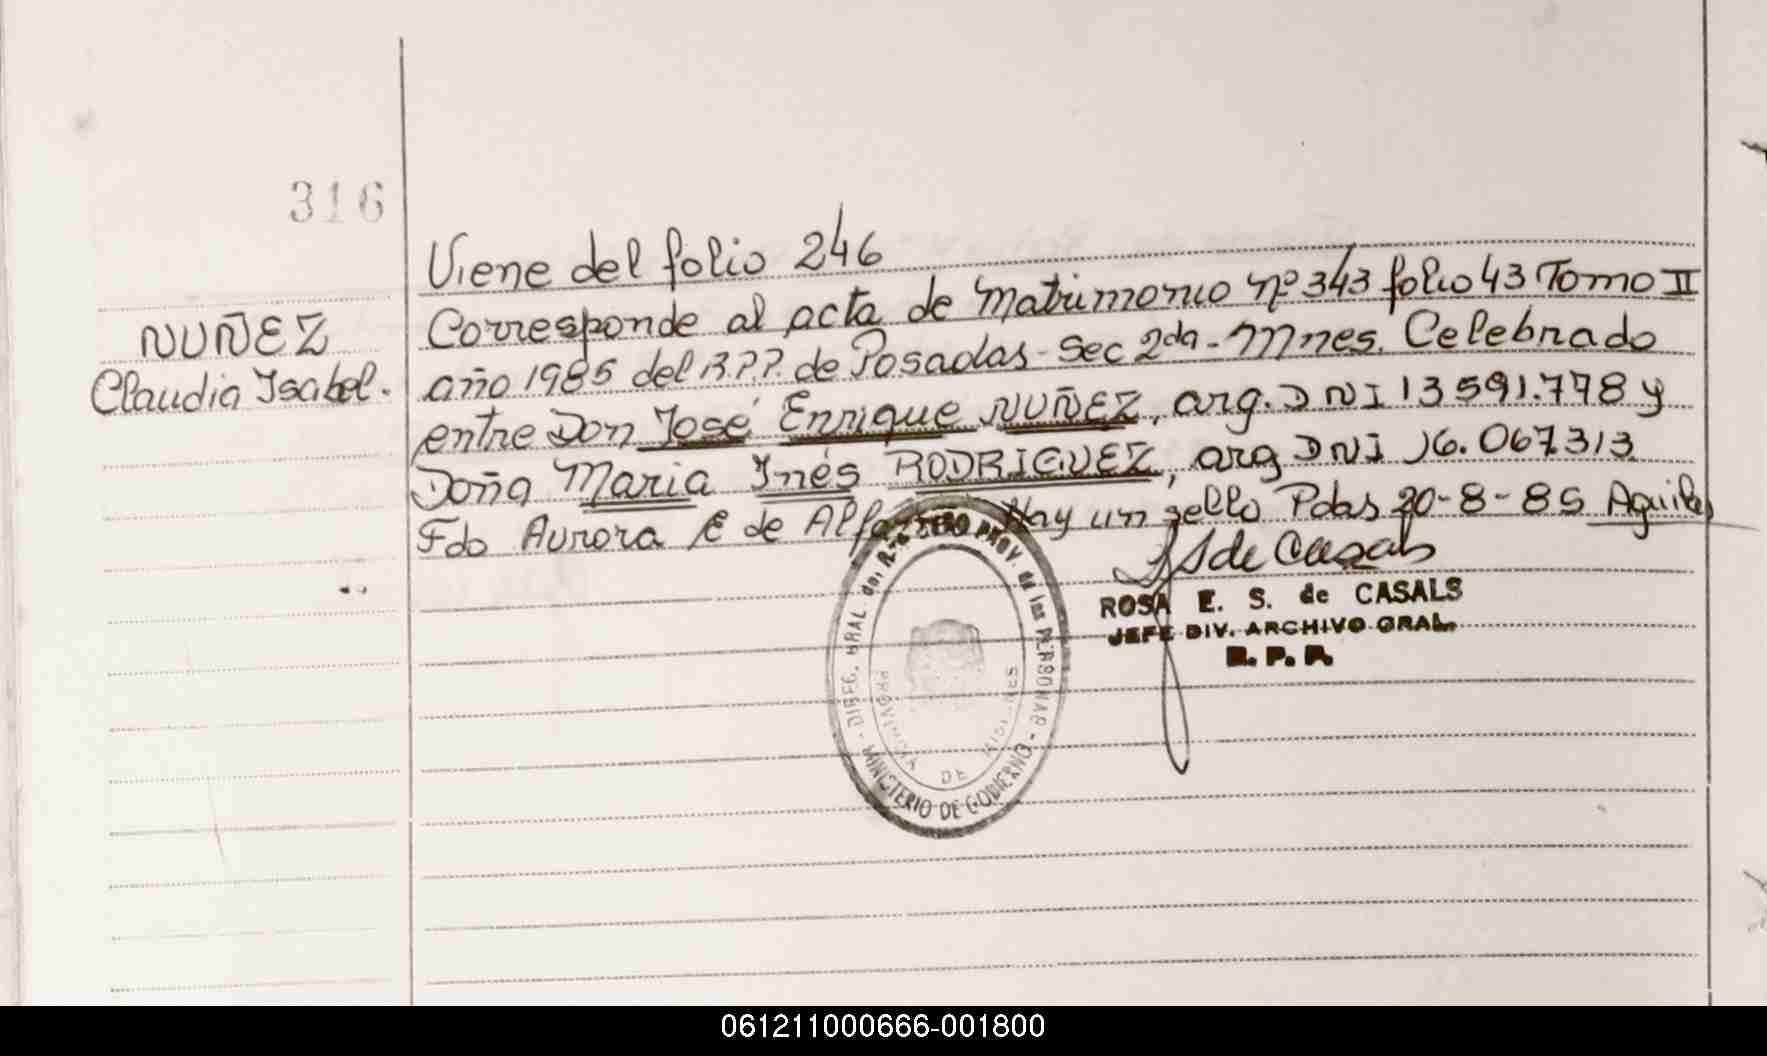 316
Viene del folio 246
NUÑEZ
Claudia Isabel.
Corresponde al acta de matrimonio nº 343 folio 43 Tomo II
año 1985 del R.P.P. de Posadas - Sec 2da - Mnes. Celebrado
entre Don José Enrique NUÑEZ, arg. DNI 13591.778 y
Doña Maria Inés RODRIGUEZ, arg DNI 16.067.313
Fdo Aurora E de Hay un sello Pdas 20-8-85
S de Casals
ROSA E. S. de CASALS
JEFE DIV. ARCHIVO GRAL.
R. P. P.
DIREC. GRAL. del REGISTRO PROV. de las PERSONAS - MINISTERIO DE GOBIERNO -
PROVINCIA DE MISIONES
061211000666-001800